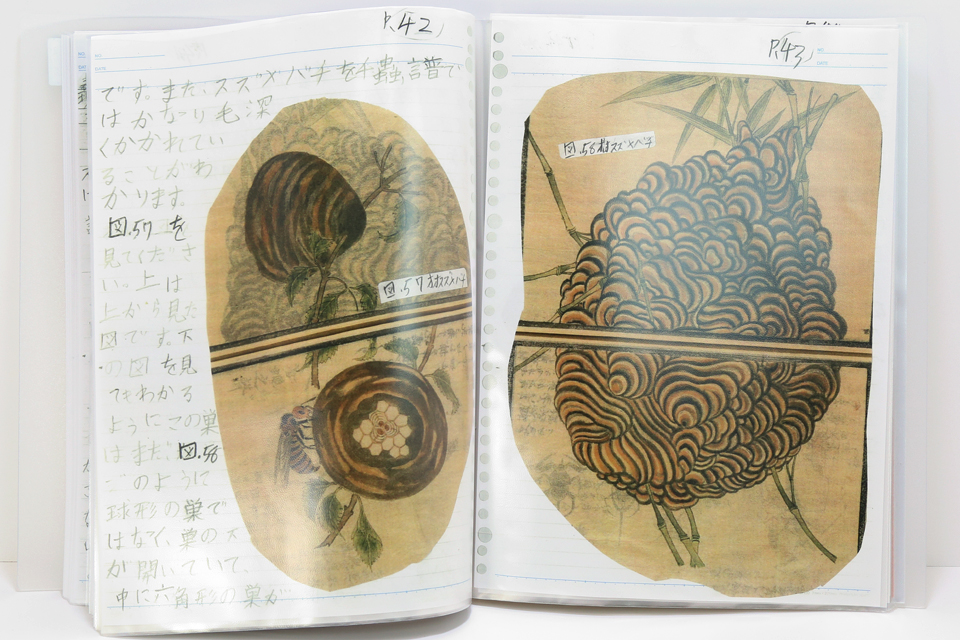 P.42
です。また、スズメバチを千蟲譜で
はかなり毛深
くかかれてい
ることがわ
かります。
図.57を
見てくださ
い。上は
上から見た
図です。下
の図を見
てもわかる
ようにこの巣
はまだ、図.58
このように
球形の巣で
はなく、巣の下
が開いていて、
中に六角形の巣が
図.57 スズメバチ
P.43
図.58 スズメバチ
NO.
DATE